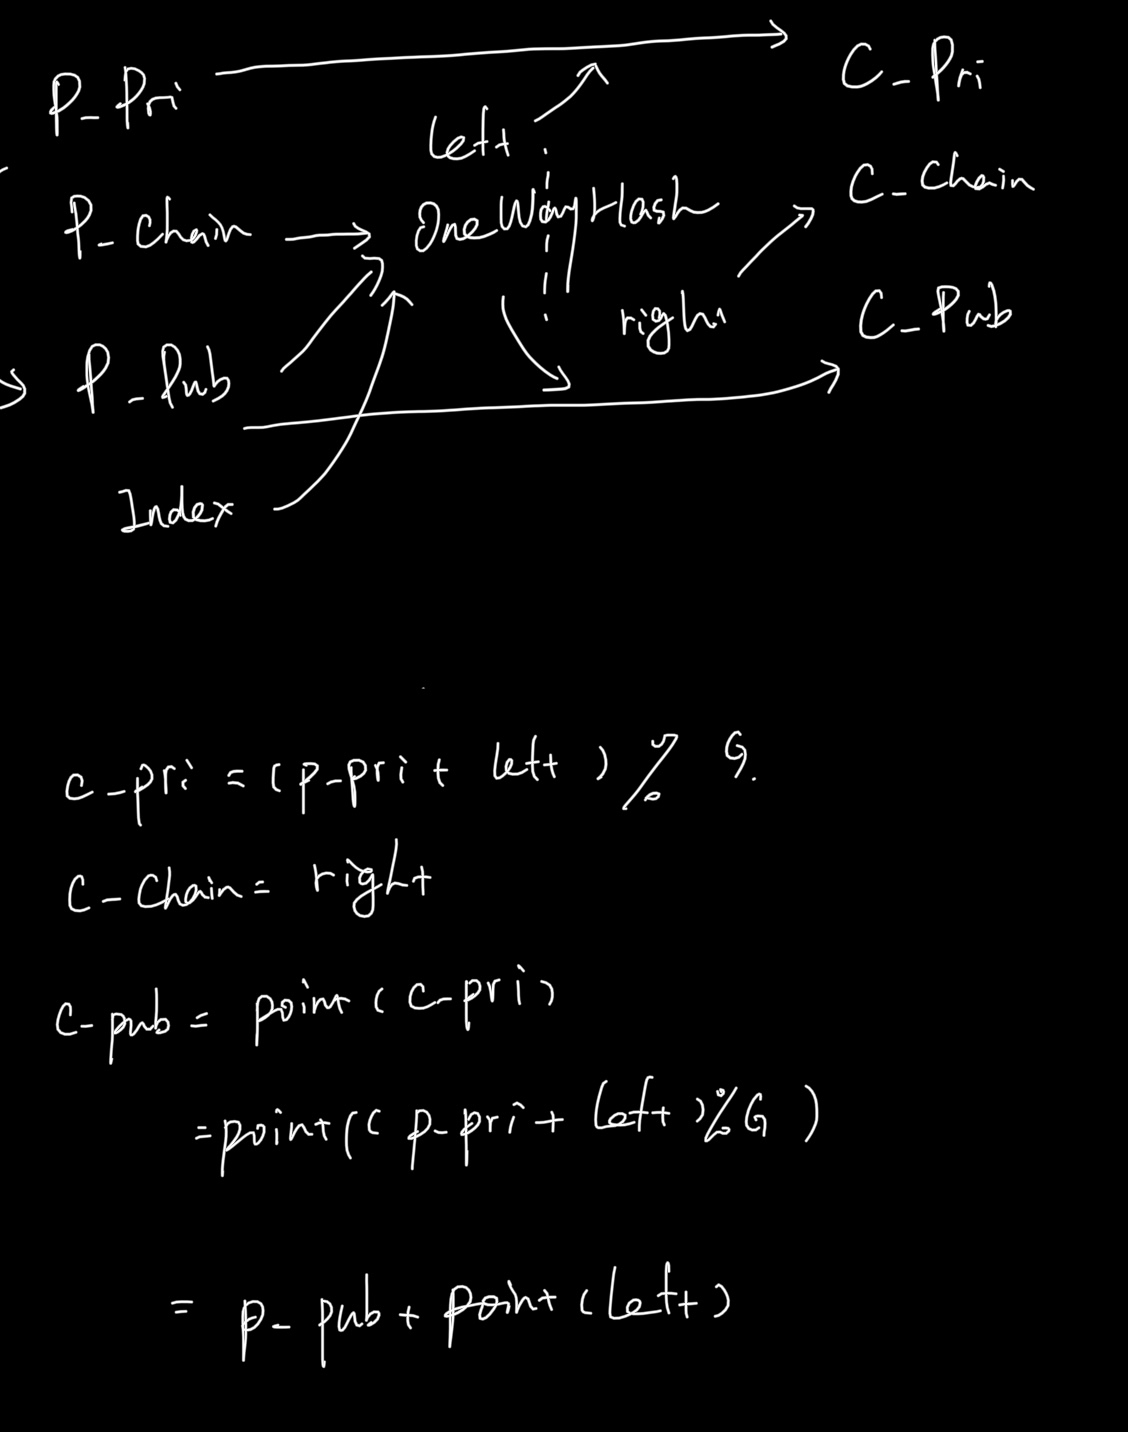 P_Pri
C_Pri
left
P_chain
OneWayHash
C_Chain
right
C_Pub
P_Pub
Index
c-pri = (p-pri + left) % G.
C-Chain = right
C-pub = point (C-pri)
= point(( p-pri + left )%G )
= p-pub + point (left)